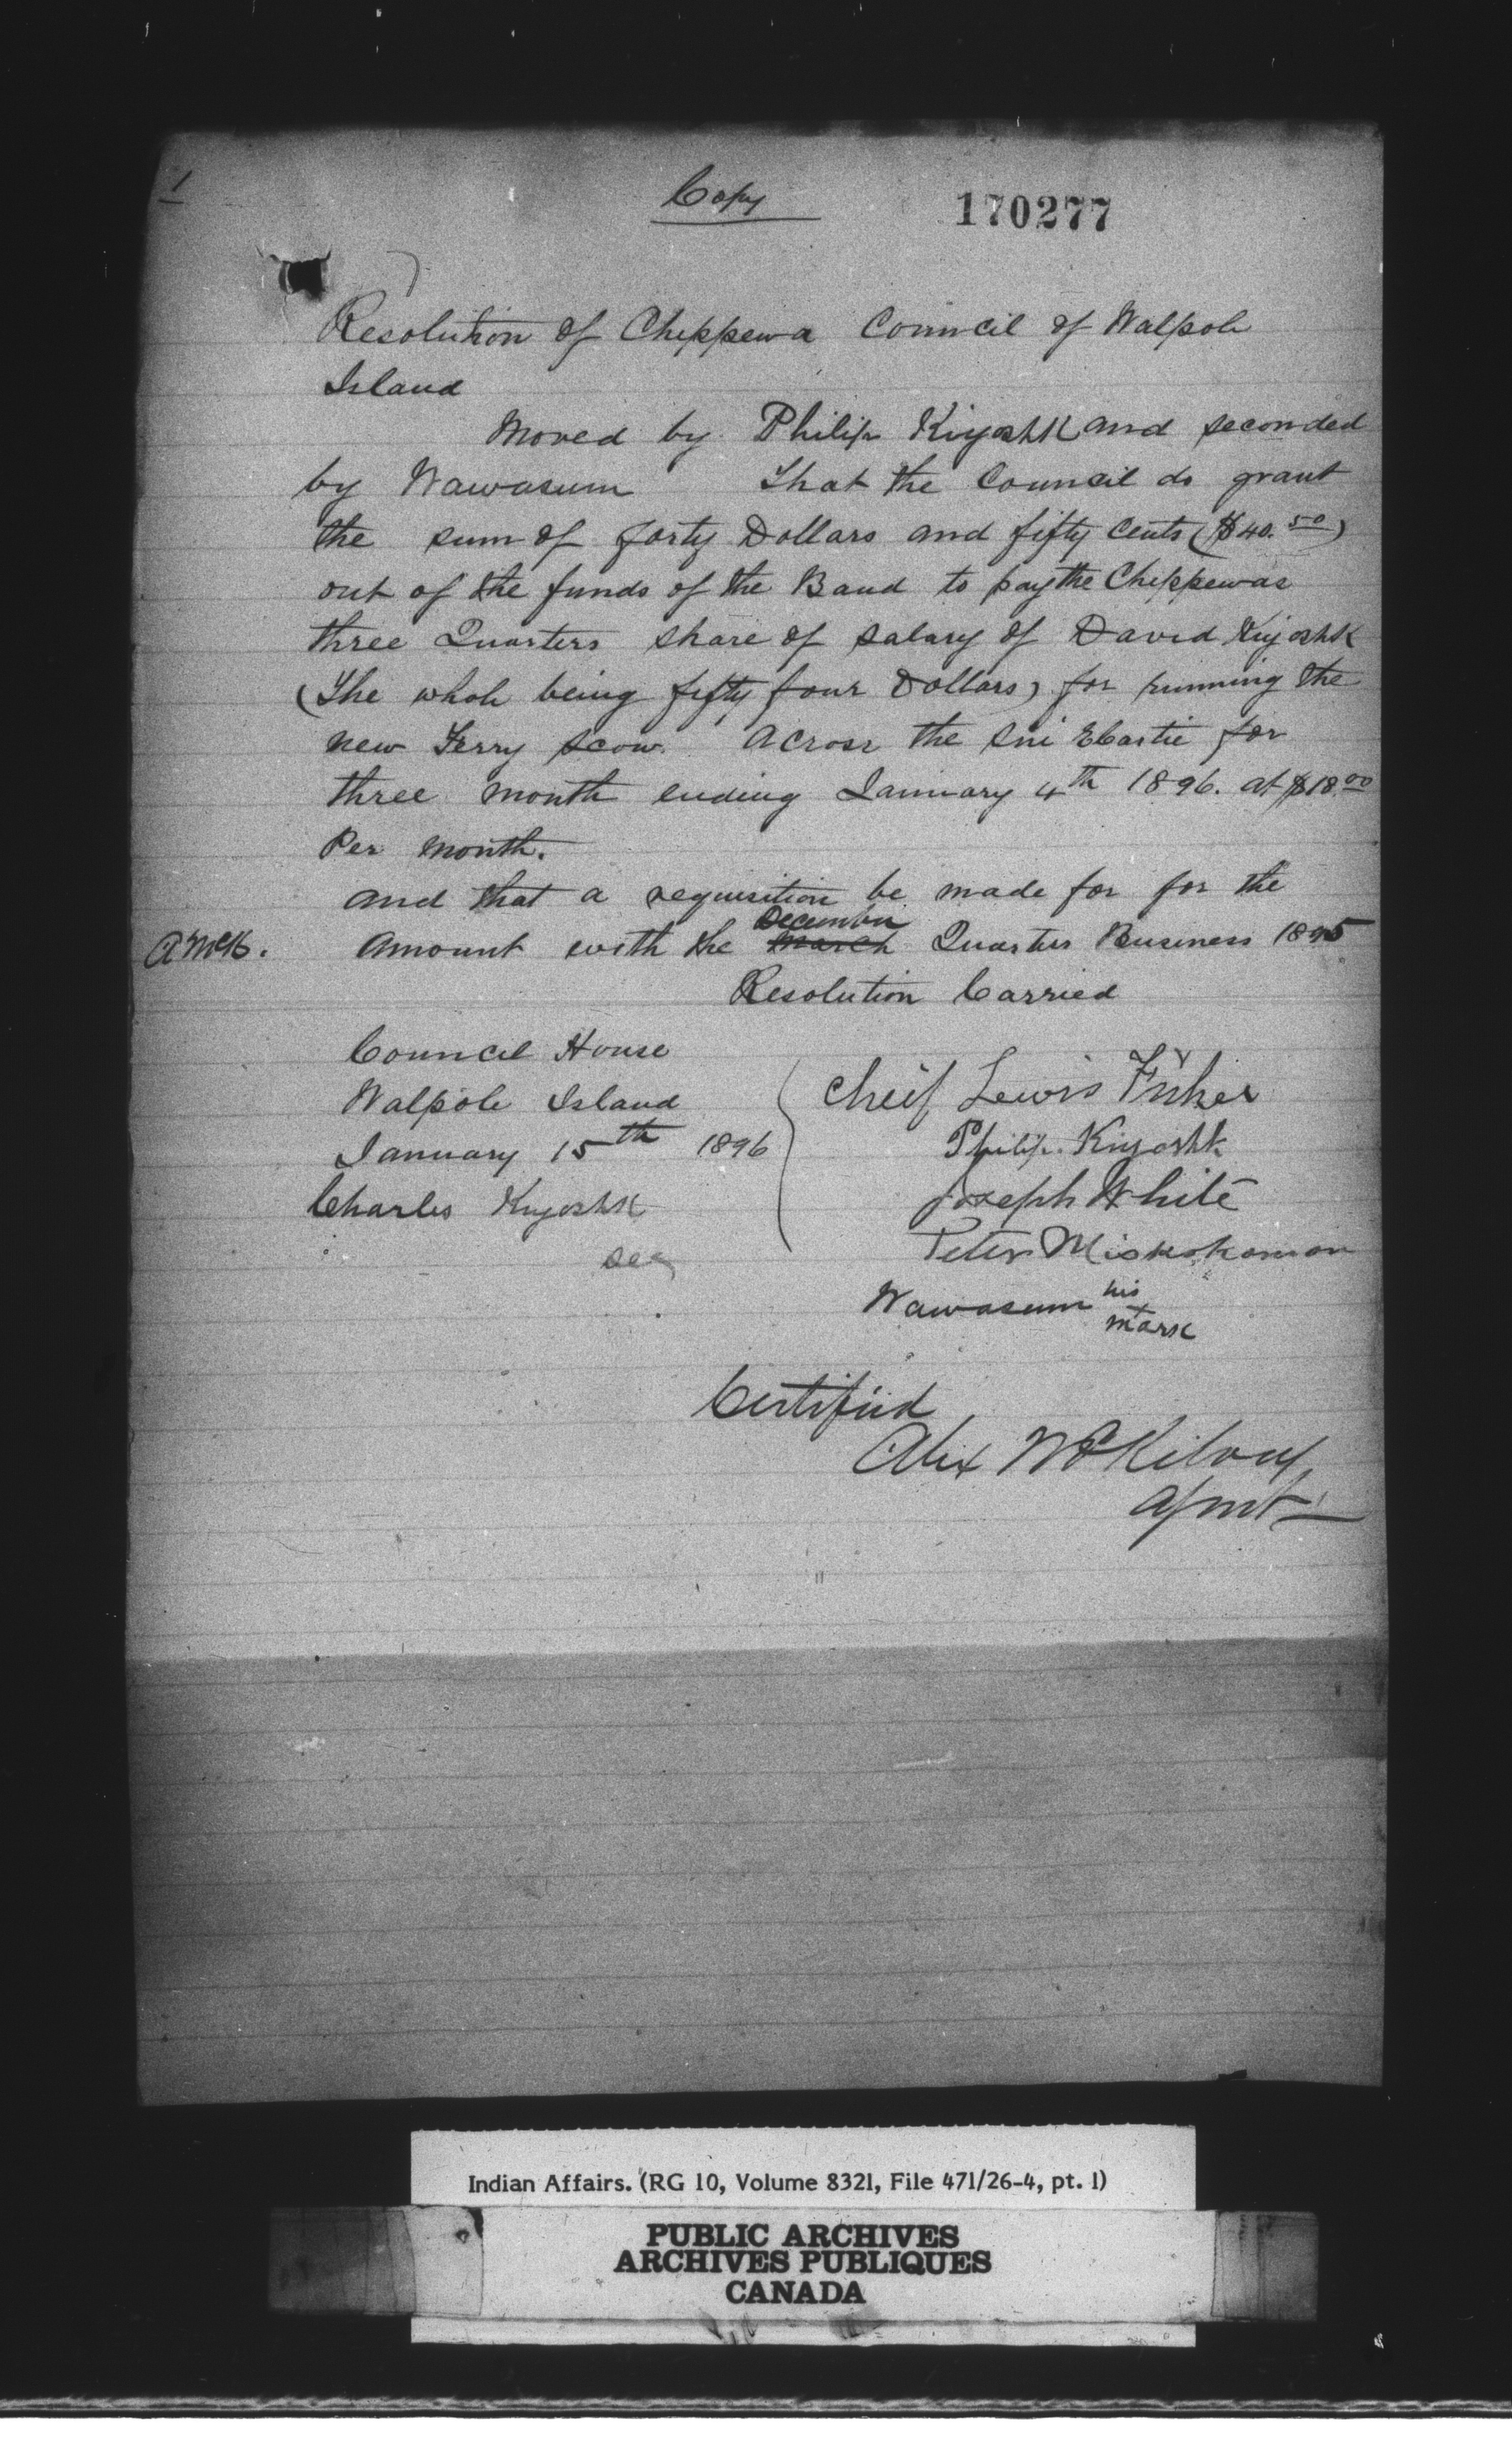 1
Copy
170277
Resolution of Chippewa Council of Walpole
Island
Moved by Philip Kiyoshk and seconded
by Wawasum That the Council do grant
the sum of forty Dollars and fifty Cents ($40.50)
out of the funds of the Band to pay the Chippewas
three Quarters share of salary of David Kiyoshk
(The whole being fifty four Dollars) for running the
new Ferry scow. Across the Sni Ebartie for
three month ending January 4th 1896. at $18.00
Per month.
and that a requisition be made for for the
December
A McK. Amount with the March Quarters Business 1895
Resolution Carried
Council House
Walpole Island
January 15th 1896
Charles Kiyoshk
Sec
Cheif Lewis Fisher
Philip. Kiyoshk
Joseph White
Peter Miskokomon
Wawasum his
+
mark
Certified
Alex McKelvey
Agent
Indian Affairs. (RG 10, Volume 8321, File 471/26-4, pt. 1)
PUBLIC ARCHIVES
ARCHIVES PUBLIQUES
CANADA